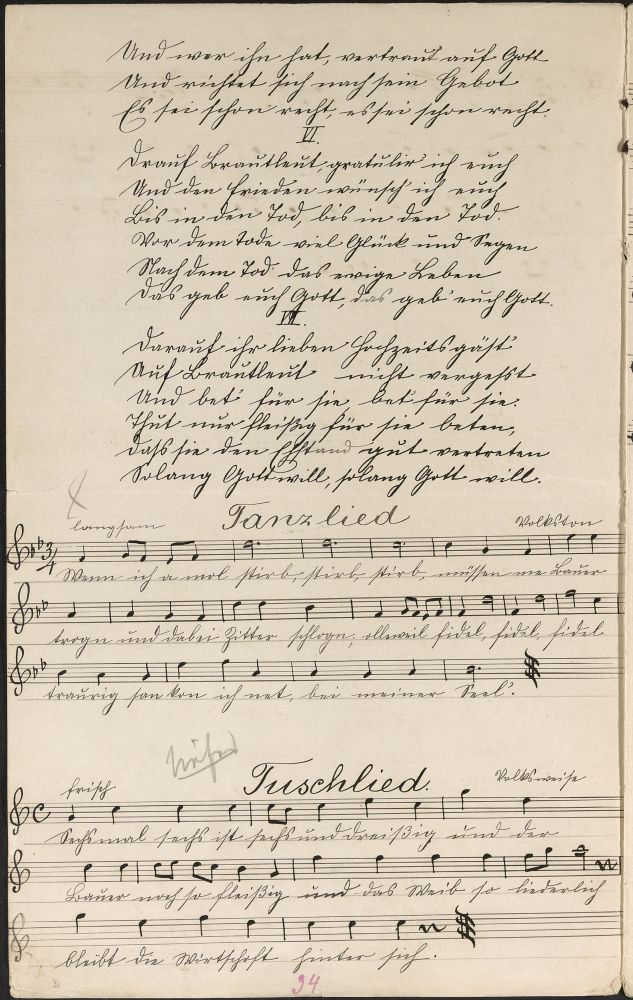 Und wer ihn hat, vertraut auf Gott
Und richtet sich nach sein Gebot
Es sei schon recht, es sei schon recht.
VI.
Drauf Brautleut, gratulir' ich euch
Und den Frieden wünsch' ich euch
Bis in den Tod, bis in den Tod.
Vor dem Tode viel Glück und Segen
Nach dem Tod das ewige Leben
Das geb euch Gott, das geb' euch Gott.
VII.
Darauf ihr lieben Hochzeitsgäst'
Auf Brautleut nicht vergesst
Und bet' für sie, bet' für sie.
Thut nur fleißig für sie beten,
Dass sie den Ehstand gut vertreten
Solang Gott will, solang Gott will.
Tanzlied
langsam Volkston
3/4
Wenn ich a mol stirb, stirb, stirb, müssen me Bauer
trogn und dabei Zitter schlogn, ollweil fidel, fidel, fidel
traurig san kon ich net, bei meiner Seel'.
höher
Tuschlied.
frisch Volksweise
C
Sechsmal sechs ist sechs und dreißig und der
Bauer noch so fleißig und das Weib so liederlich
bleibt die Wirtschaft hinter sich.
34